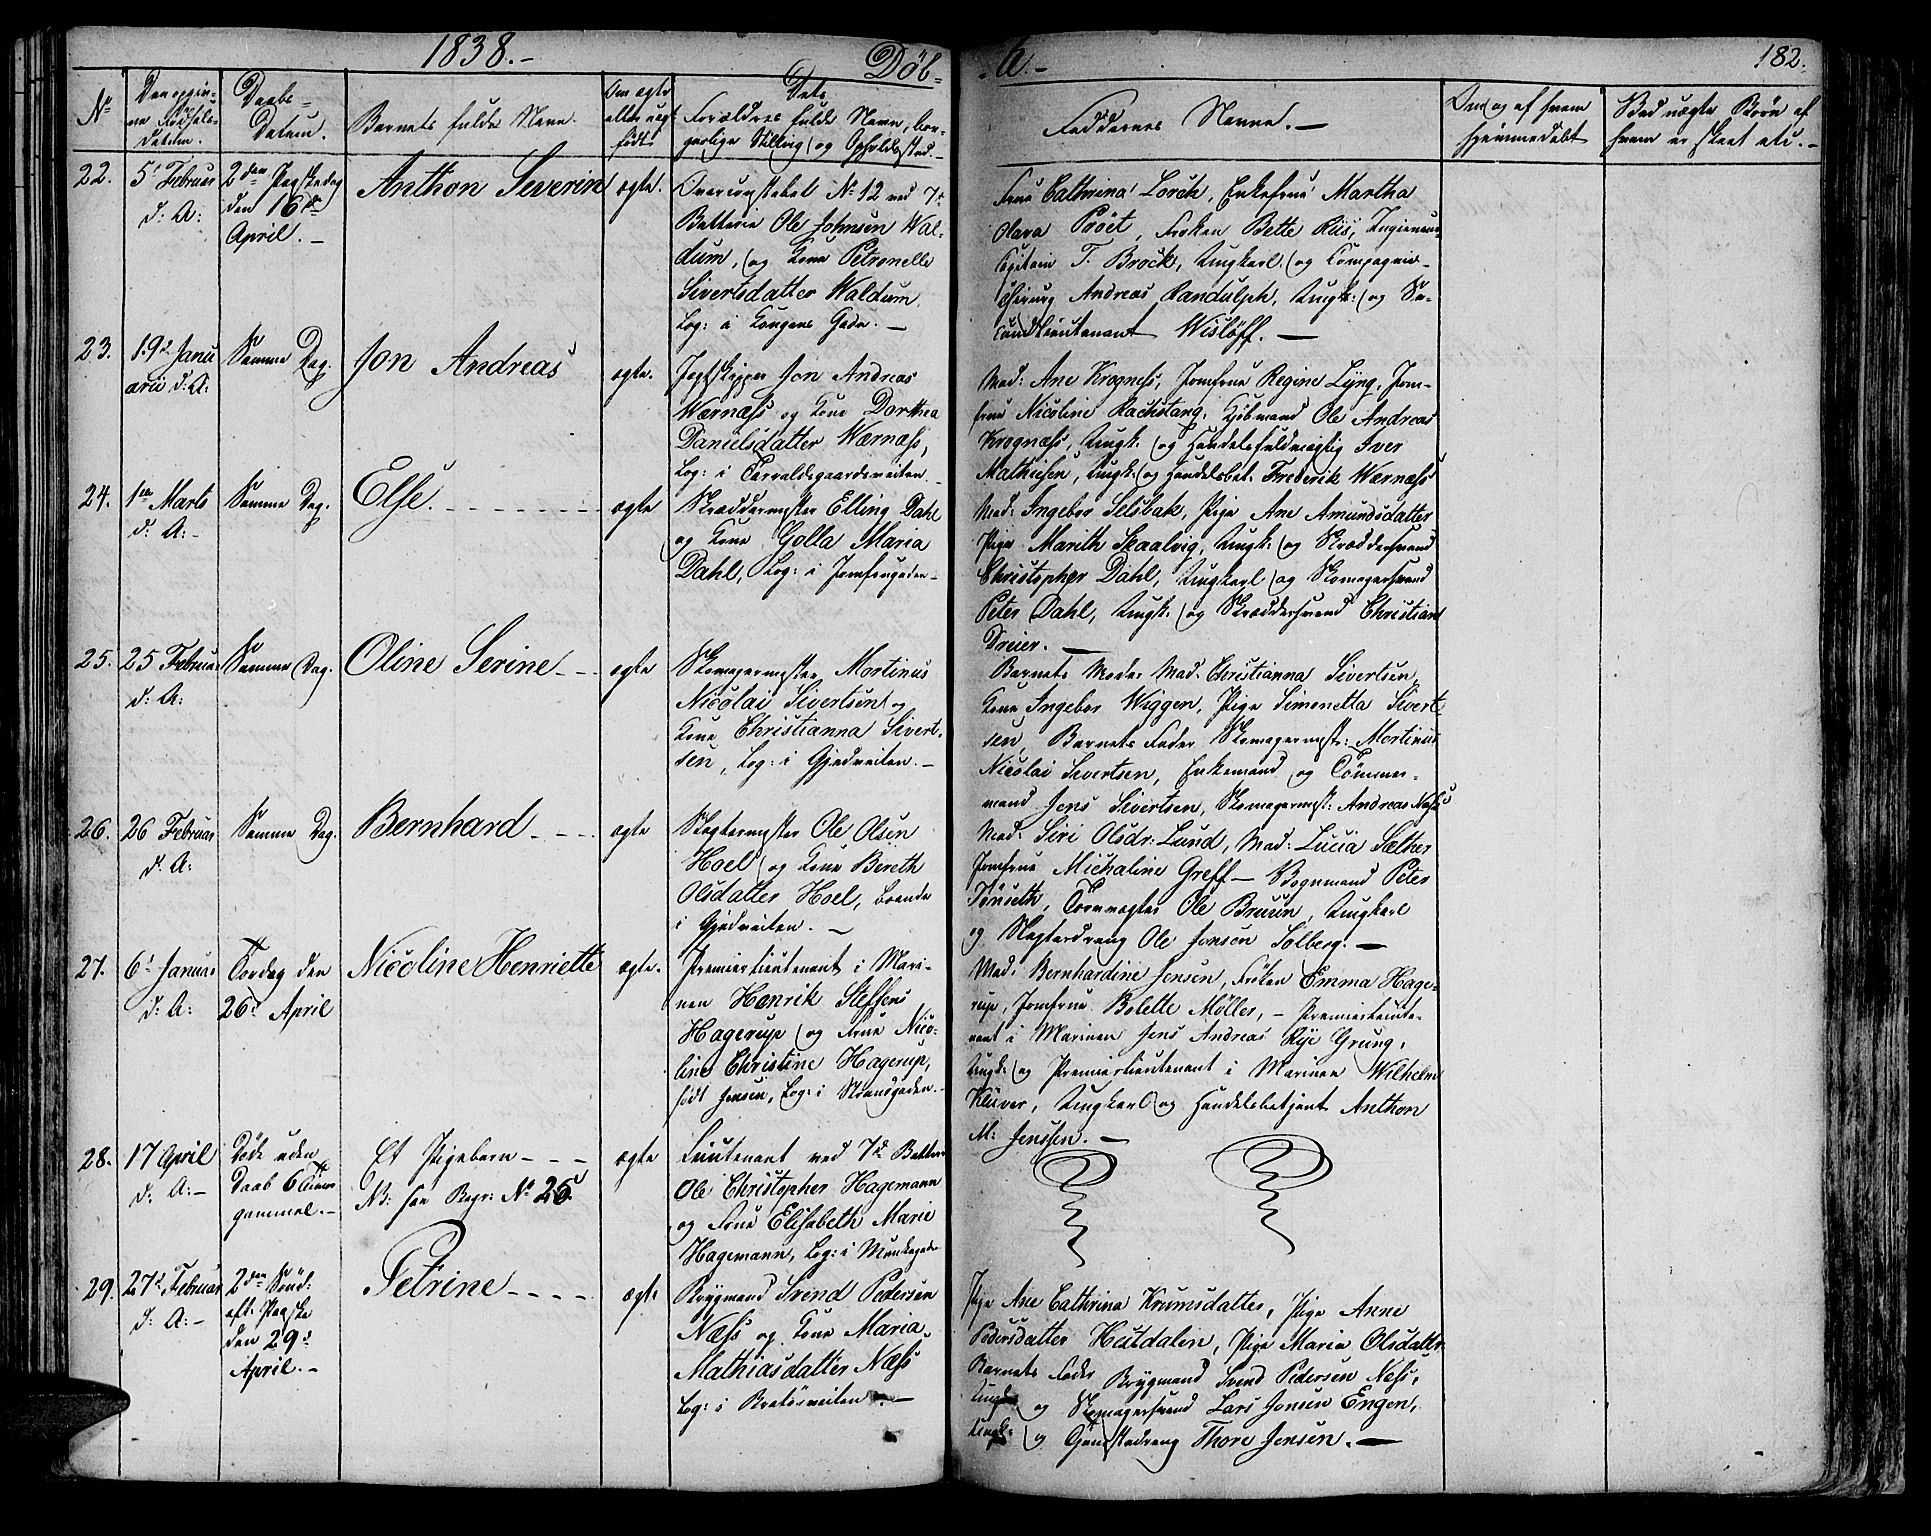 1838.-
Døb-
-te.-
182.
No
Den opgiv-
ne Fødsels-
datum.
Daabs-
Datum.
Barnets fulde Navn.
Om ægte
eller uægt.
født.
Dets
Forældres fulde Navn, bor-
gerlige Stilling og Opholdssted.-
Faddernes Navne.-
Om og af hvem
hjemmedøbt
Ved uægte Børn af
hvem er skeet etc.-
22.
5t Februar
d: A:
2den Paaskedag
den 16de
April.-
Anthon Severin
ægte.
Overconstabel No 12 ved 7d
Batterie Ole Johnsen Wal-
dum, og Kone Petronelle
Sivertsdatter Waldum.
Log: i Kongens Gade.-
Frue Cathrina Lorck, Enkefrue Martha
Olava Pröet, Frøken Bette Riis, Ingieneur
Capitain T. Brock, Ungkarl og Compagnie-
Chirurg Andreas Randulph, Ungk: og Se-
condlieutenant Wisløff.-
23.
19d Janu
arii d: A:
Samme Dag.
Jon Andreas
ægte.
Jagtskipper Jon Andreas
Wærnæss og Kone Dorthea
Danielsdatter Wærnæss,
Log: i Torvaldsgaardsveiten.-
Mad: Ane Krogness, Jomfrue Regine Lyng, Jom-
frue Nicoline Rachstang, Kjøbmand Ole Andreas
Krognæss, Ungk: og Handelsfuldmægtig Iver
Mathiesen, Ungk: og Handelsbet. Frederik Wærnæss
24.
1ste Marts
d: A:-
Samme Dag.
Else.
ægte
Skræddermester Elling Dahl
og Kone Golla Maria
Dahl, Log: i Jomfrugaden-
Mad: Ingebor Selsbak, Pige Ane Amundsdatter
Pige Marith Skaalvig, Ungk: og Skræddersvend
Christopher Dahl, Ungkarl og Skomagersvend
Peter Dahl, Ungk: og Skræddersvend Christian
Dreier.-
25.
25 Februar
d: A:
Samme Dag.
Oline Serine
ægte
Skomagermester Mortinus
Nicolai Sivertsen og
Kone Christianna Sivert-
sen, Log: i Gjedveiten.-
Barnets Moder Mad: Christianna Sivertsen,
Kone Ingebor Wiggen, Pige Simonetta Sivert-
sen, Barnets Fader Skomagermstr: Mortinus
Nicolai Sivertsen, Enkemand og Tømmer-
mand Jens Sivertsen, Skomagermst: Andreas Næss
26.
26 Februar
d: A:
Samme Dag.
Bernhard
ægte
Slagtermester Ole Olsen
Hoel og Kone Bereth
Olsdatter Hoel, boende
i Gjedveiten.-
Mad: Siri Olsdr: Lund, Mad: Lucia Sæther
Jomfrue Michaline Greff- Vognmand Peter
Tönseth, Tørvvogter Ole Bruun, Ungkarl
og Slagterdreng Ole Jonsen Solberg.-
27.
6t Januar
d: A:
Torsdag den
26d April
Nicoline Henriette
ægte.
Premierlieutenant i Mari-
nen Henrik Steffens
Hagerup og Frue Nico-
line Christine Hagerup,
født Jensen, Log: i Strandgaden.-
Mad: Bernhardine Jensen, Frøken Emma Hage-
rup, Jomfrue Bolette Møller,- Premierlieute-
nant i Marinen Jens Andreas Rye Grung,
Ungk: og Premierlieutenant i Marinen Wilhelm
Klüver, Ungkarl og Handelsbetjent Anthon
M: Jenssen.-
28.
17 April
d: A:-
Døde uden
Daab 6 Timer
gammel.-
Et Pigebarn
NB: see Begr: No 26
ægte
Lieutenant ved 7de Batterie
Ole Christopher Hagemann
og Frue Elisabeth Marie
Hagemann, Log: i Munkegaden
29.
27d Februar
d: A:-
2den Sønd:
eft: Paaske
den 29d
April.-
Petrine
ægte
Brygmand Svend Pedersen
Næss og Kone Maria
Mathiasdatter Næss
Log: i Bratörveiten.-
Pige Ane Cathrina Krumsdatter, Pige Anne
Pedersdatter Heitdalin, Pige Maria Olsdatter
Barnets Fader Brygmand Svend Pedersen Næss,
Ungk: og Skomagersvend Lars Jonsen Engen,
Ungk: og Thore Jensen.-